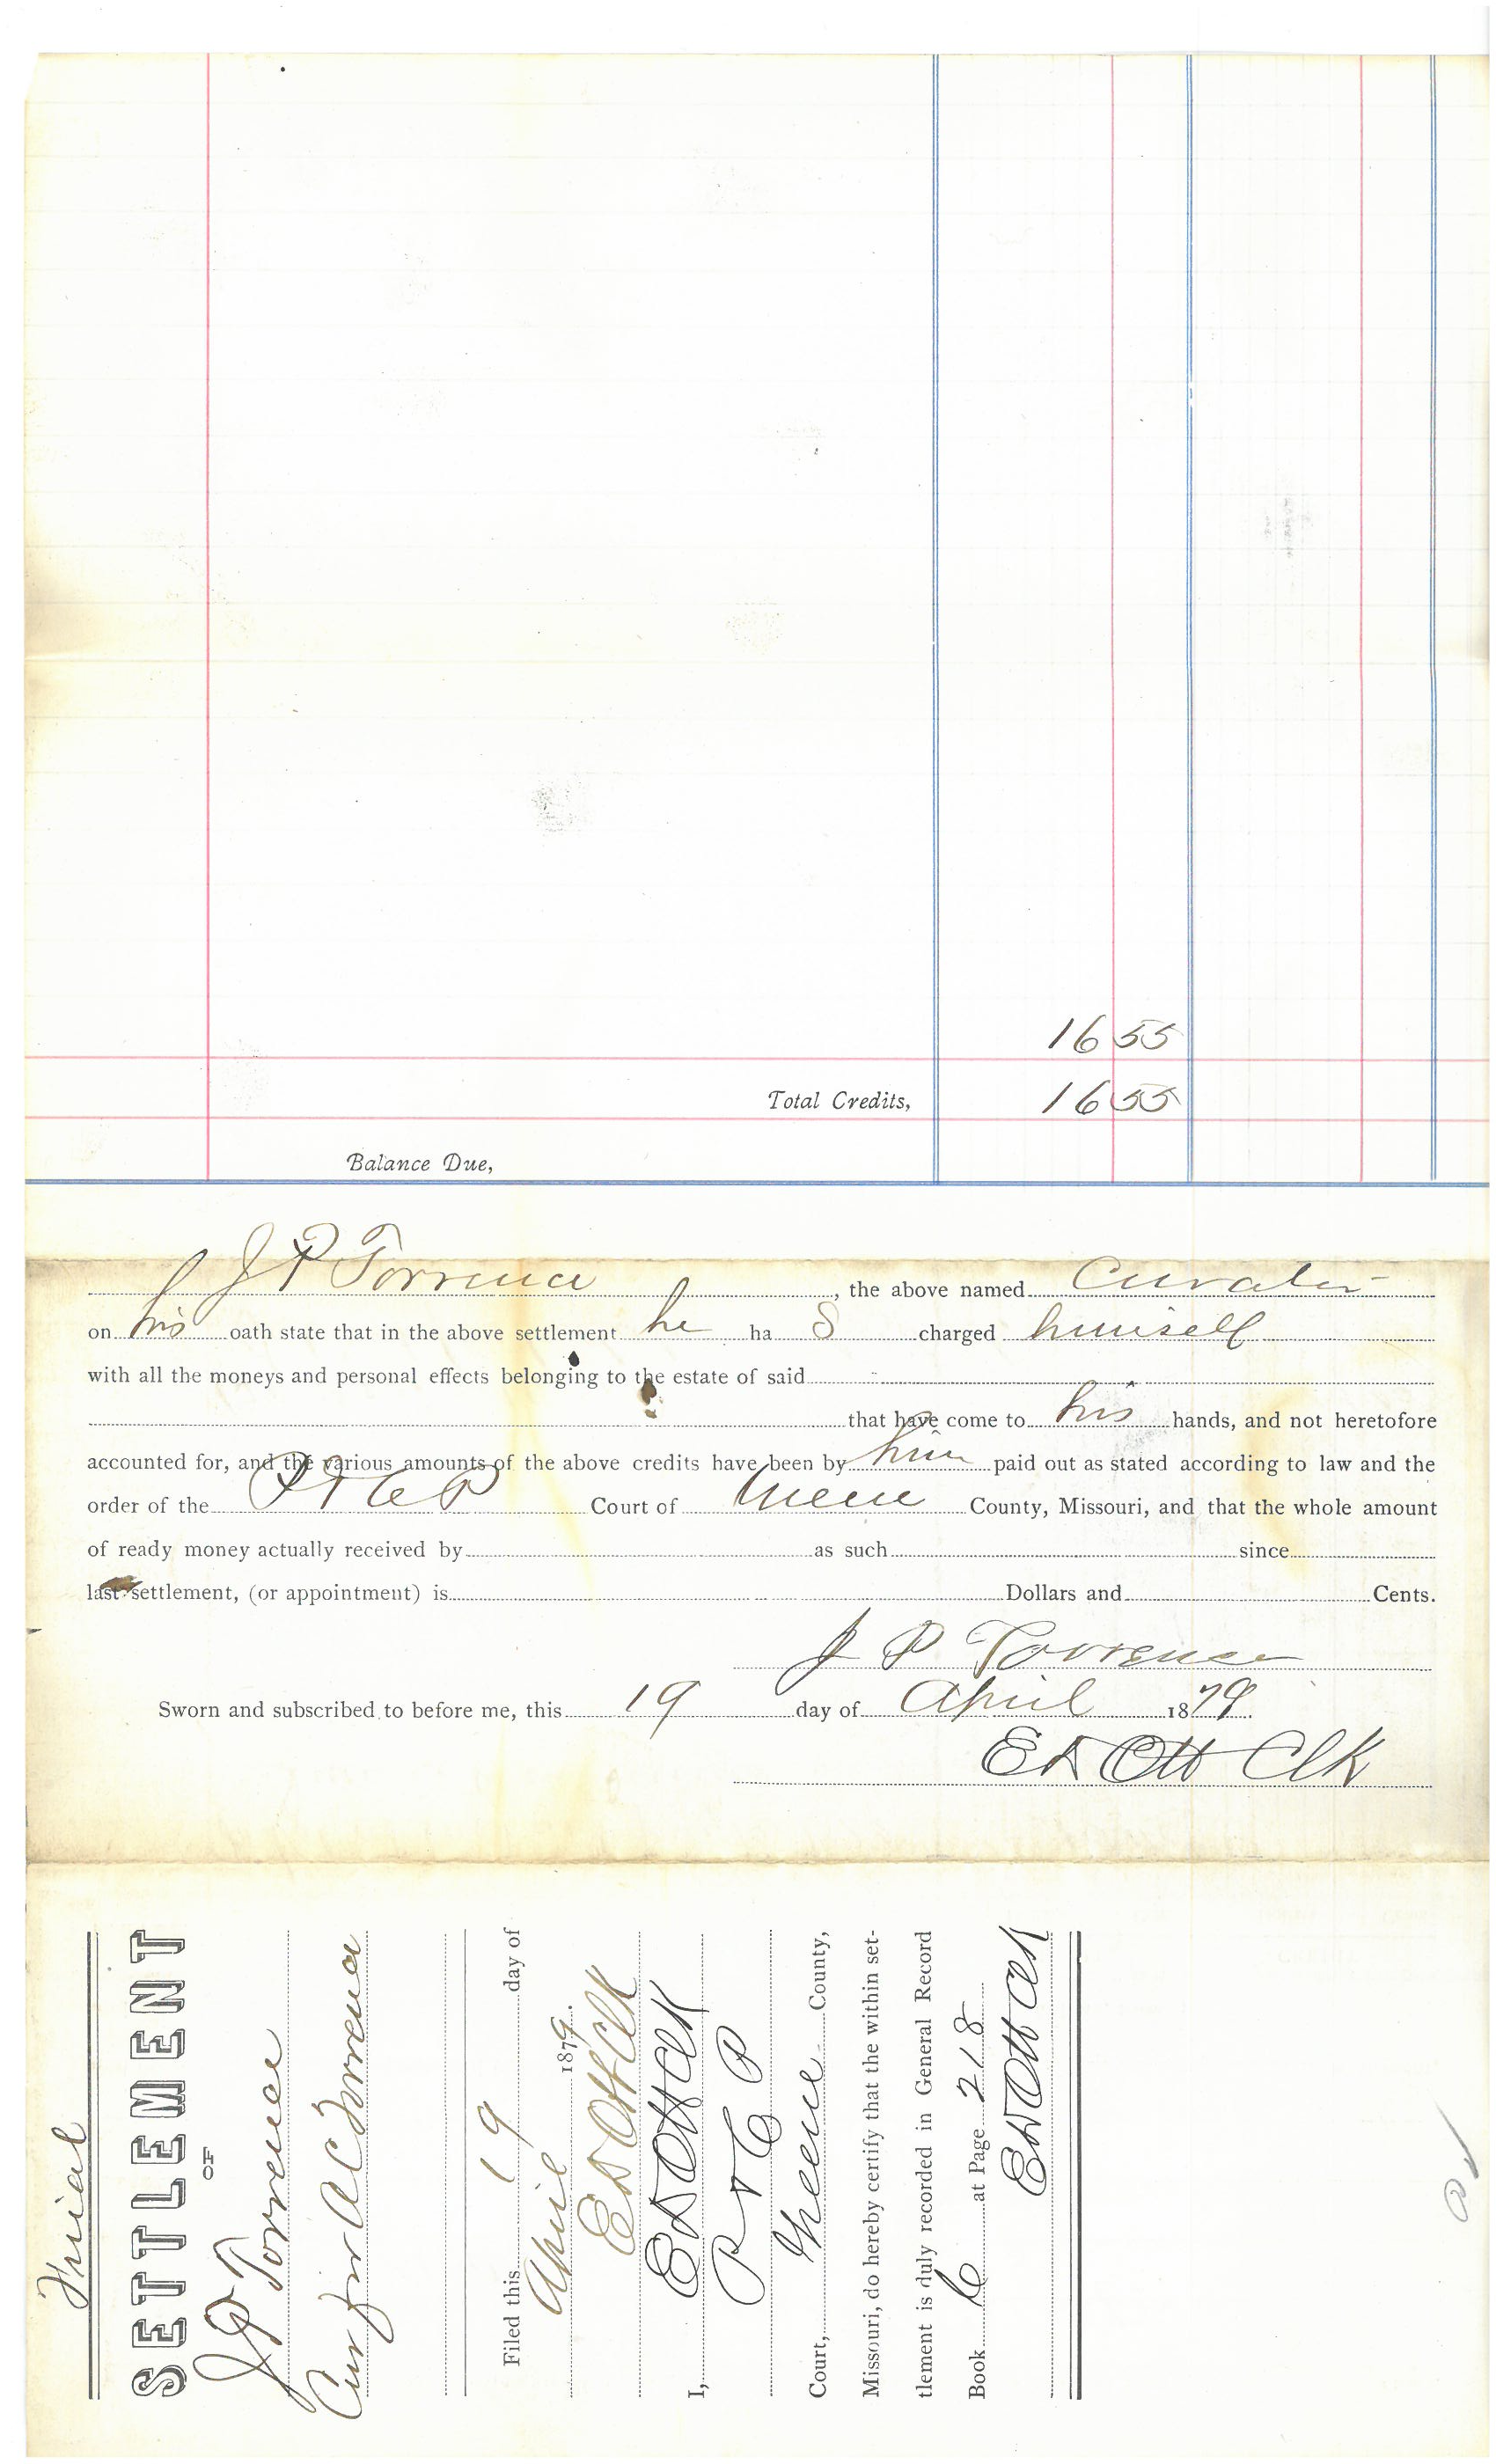 16 55
Total Credits, 16 55
Balance Due,
J P Torrence, the above named Curator
on his oath state that in the above settlement he ha s charged himself
with all the moneys and personal effects belonging to the estate of said
that have come to his hands, and not heretofore
accounted for, and the various amounts of the above credits have been by him paid out as stated according to law and the
order of the P & C P Court of Greene County, Missouri, and that the whole amount
of ready money actually received by as such since
last settlement, (or appointment) is Dollars and Cents.
J P Torrence
Sworn and subscribed to before me, this 19 day of April 1879.
E D Ott Clk
Final
SETTLEMENT
OF
J P Torrence
Cur for A C Torrence
Filed this 19 day of
April 1879.
E D Ott Clk
I, E D Ott Clk
P & C P
Court, Greene County,
Missouri, do hereby certify that the within set-
tlement is duly recorded in General Record
Book at Page 218
E D Ott Clk